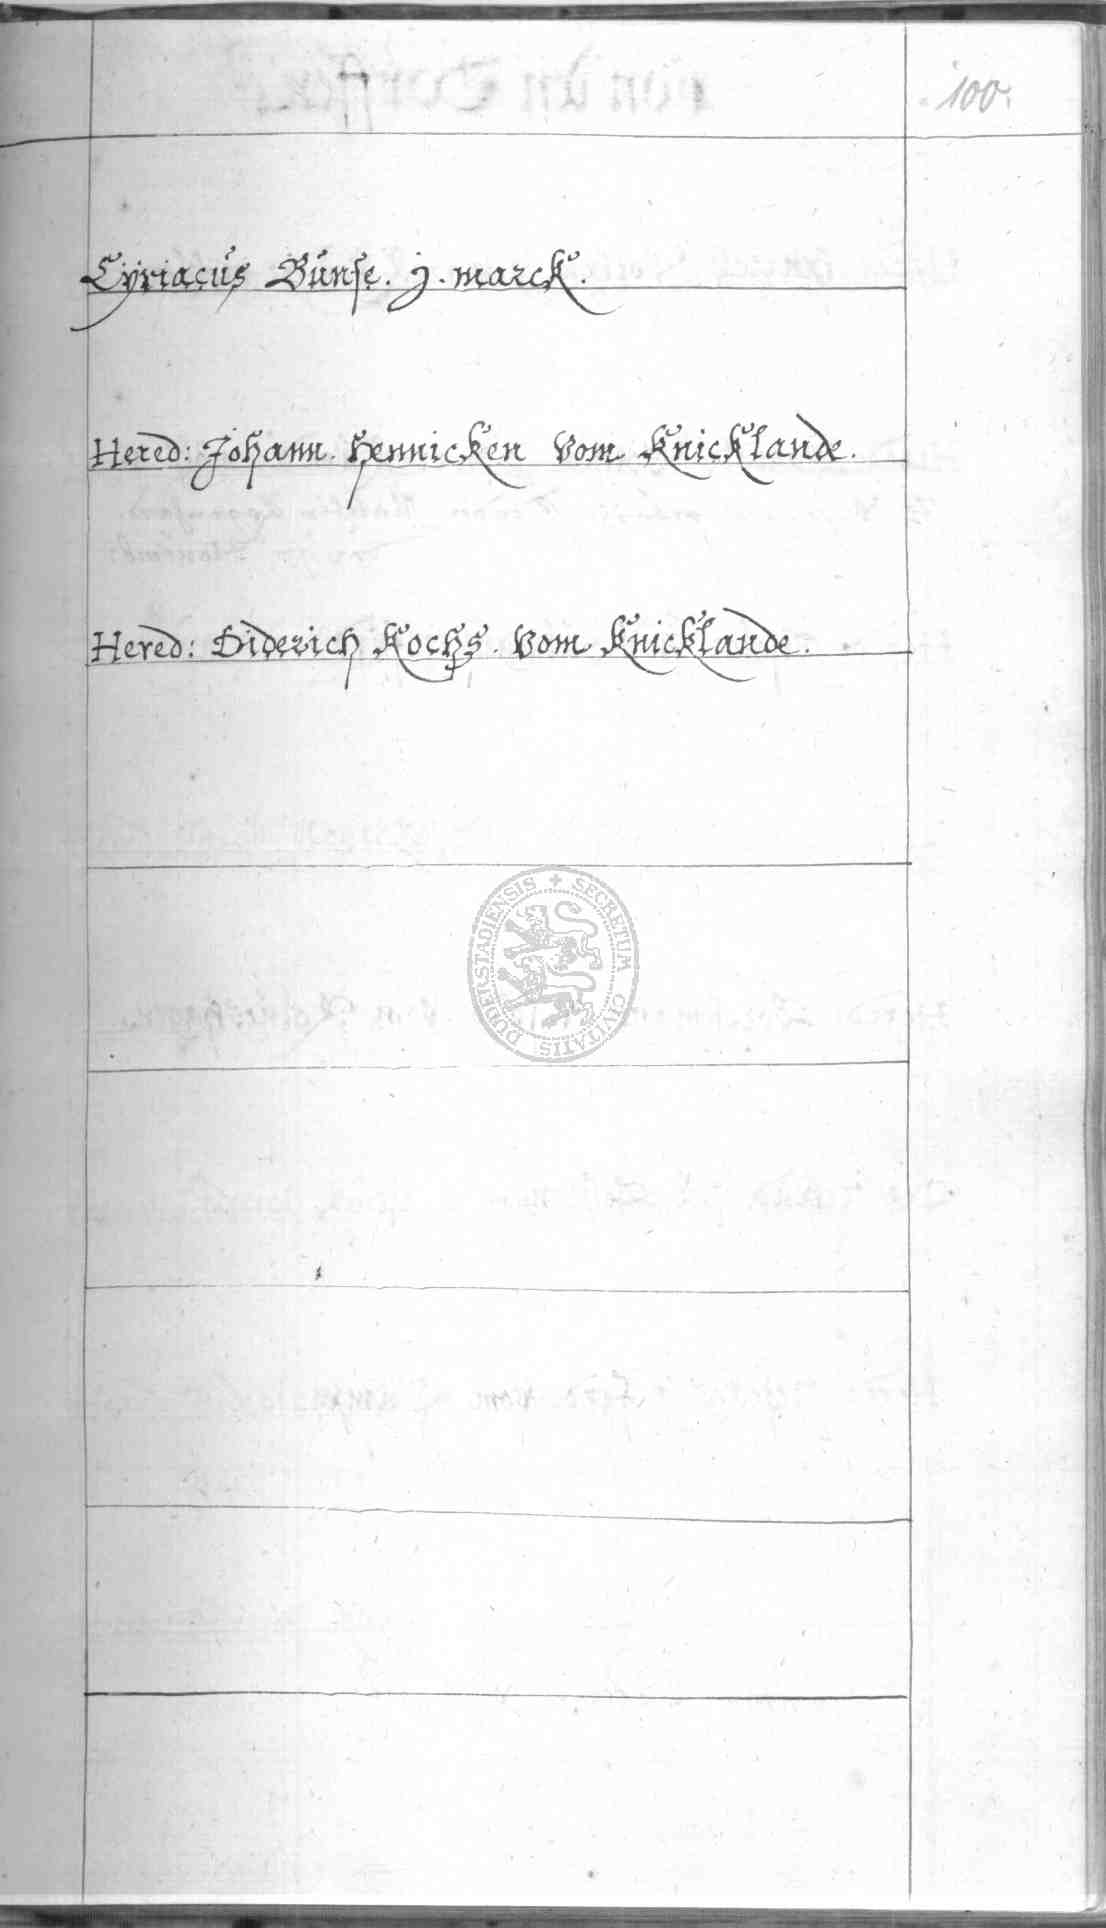 100.
Cyriacus Bunse. j. marck.
Hered: Johann. Hennicken Vom Knicklande.
Hered: Diderich Kochs. Vom Knicklande.
SECRETUM CIVITATIS DUDERSTADIENSIS